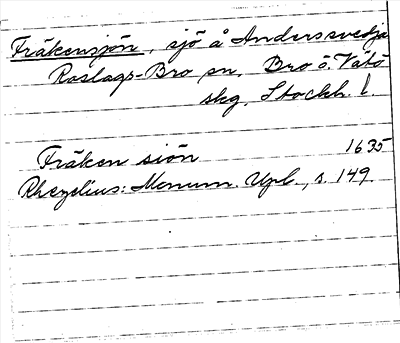 Fräkensjön, sjö å Anderssvedja
Roslags-Bro sn. Bro o. Vätö
skg, Stockh. l.
Fräken siön 1635
Rhezelius: Monum. Upl., s. 149.